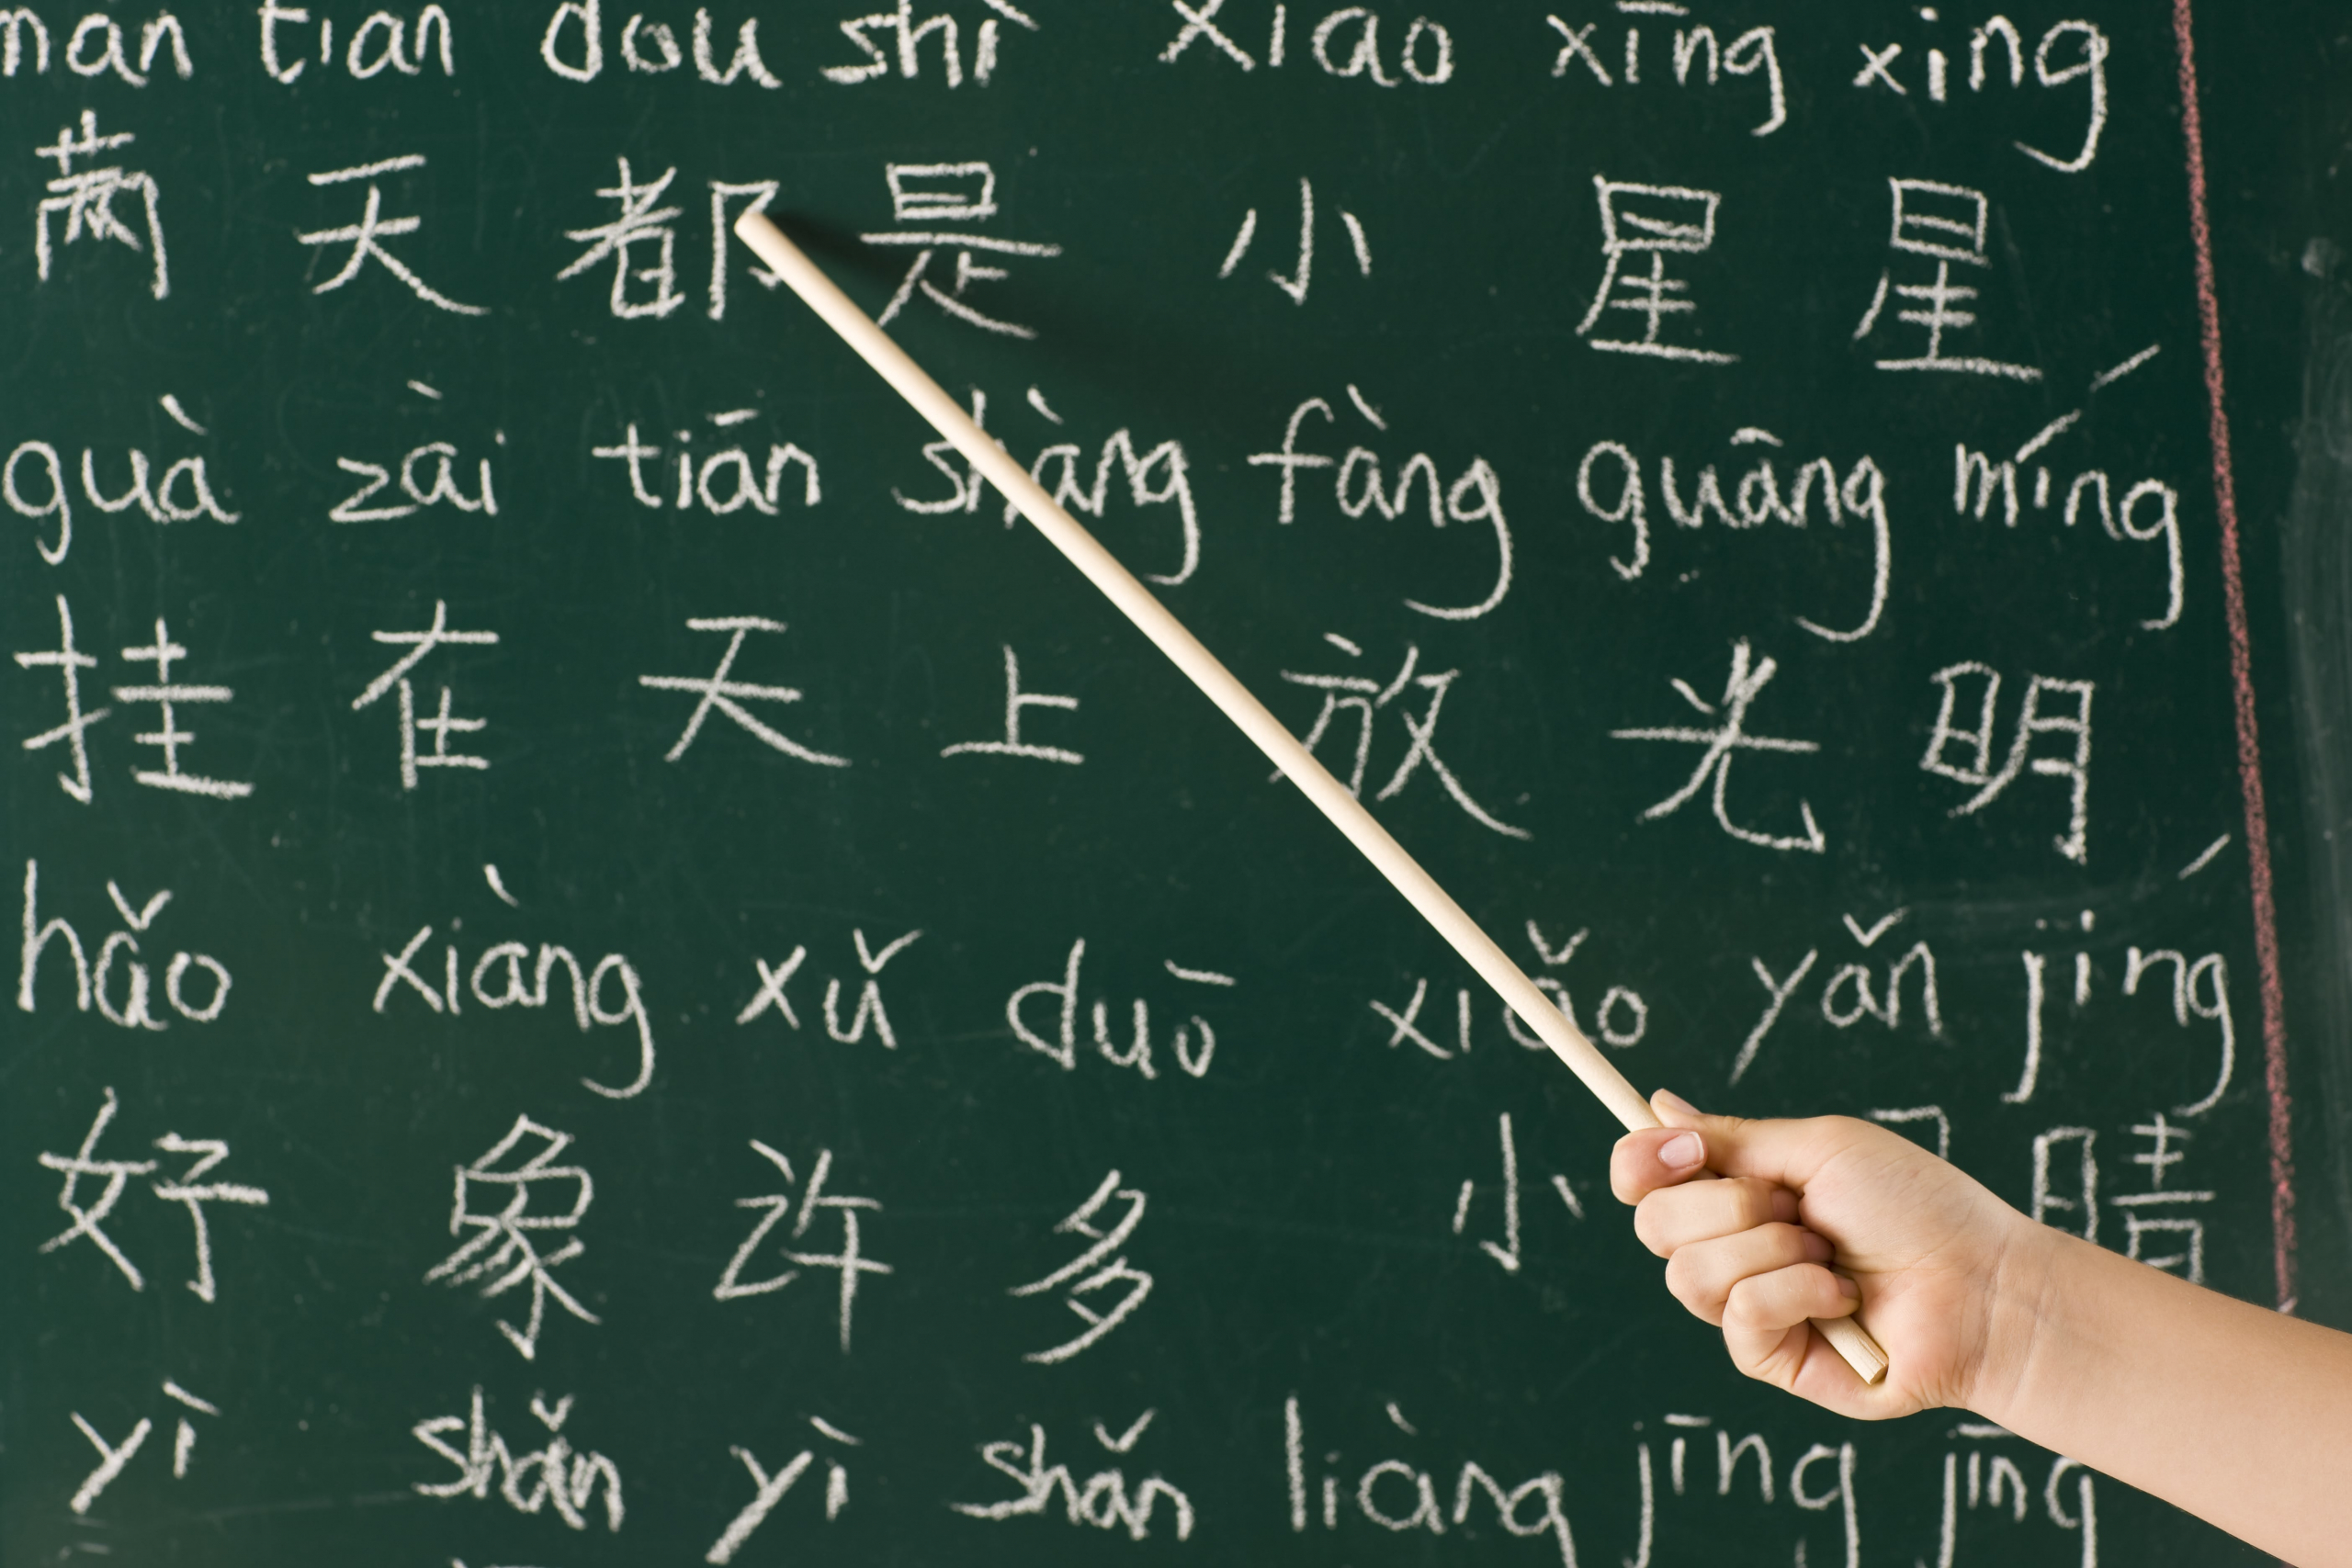 tian dou shì xiao xīng xing
天 都 是 小 星 星
guà zài tiān shàng fàng guāng míng
挂 在 天 上 放 光 明
hǎo xiàng xǔ duō xiǎo yǎn jíng
好 象 许 多 小 睛
yì shǎn yì shǎn liàng jīng jīng